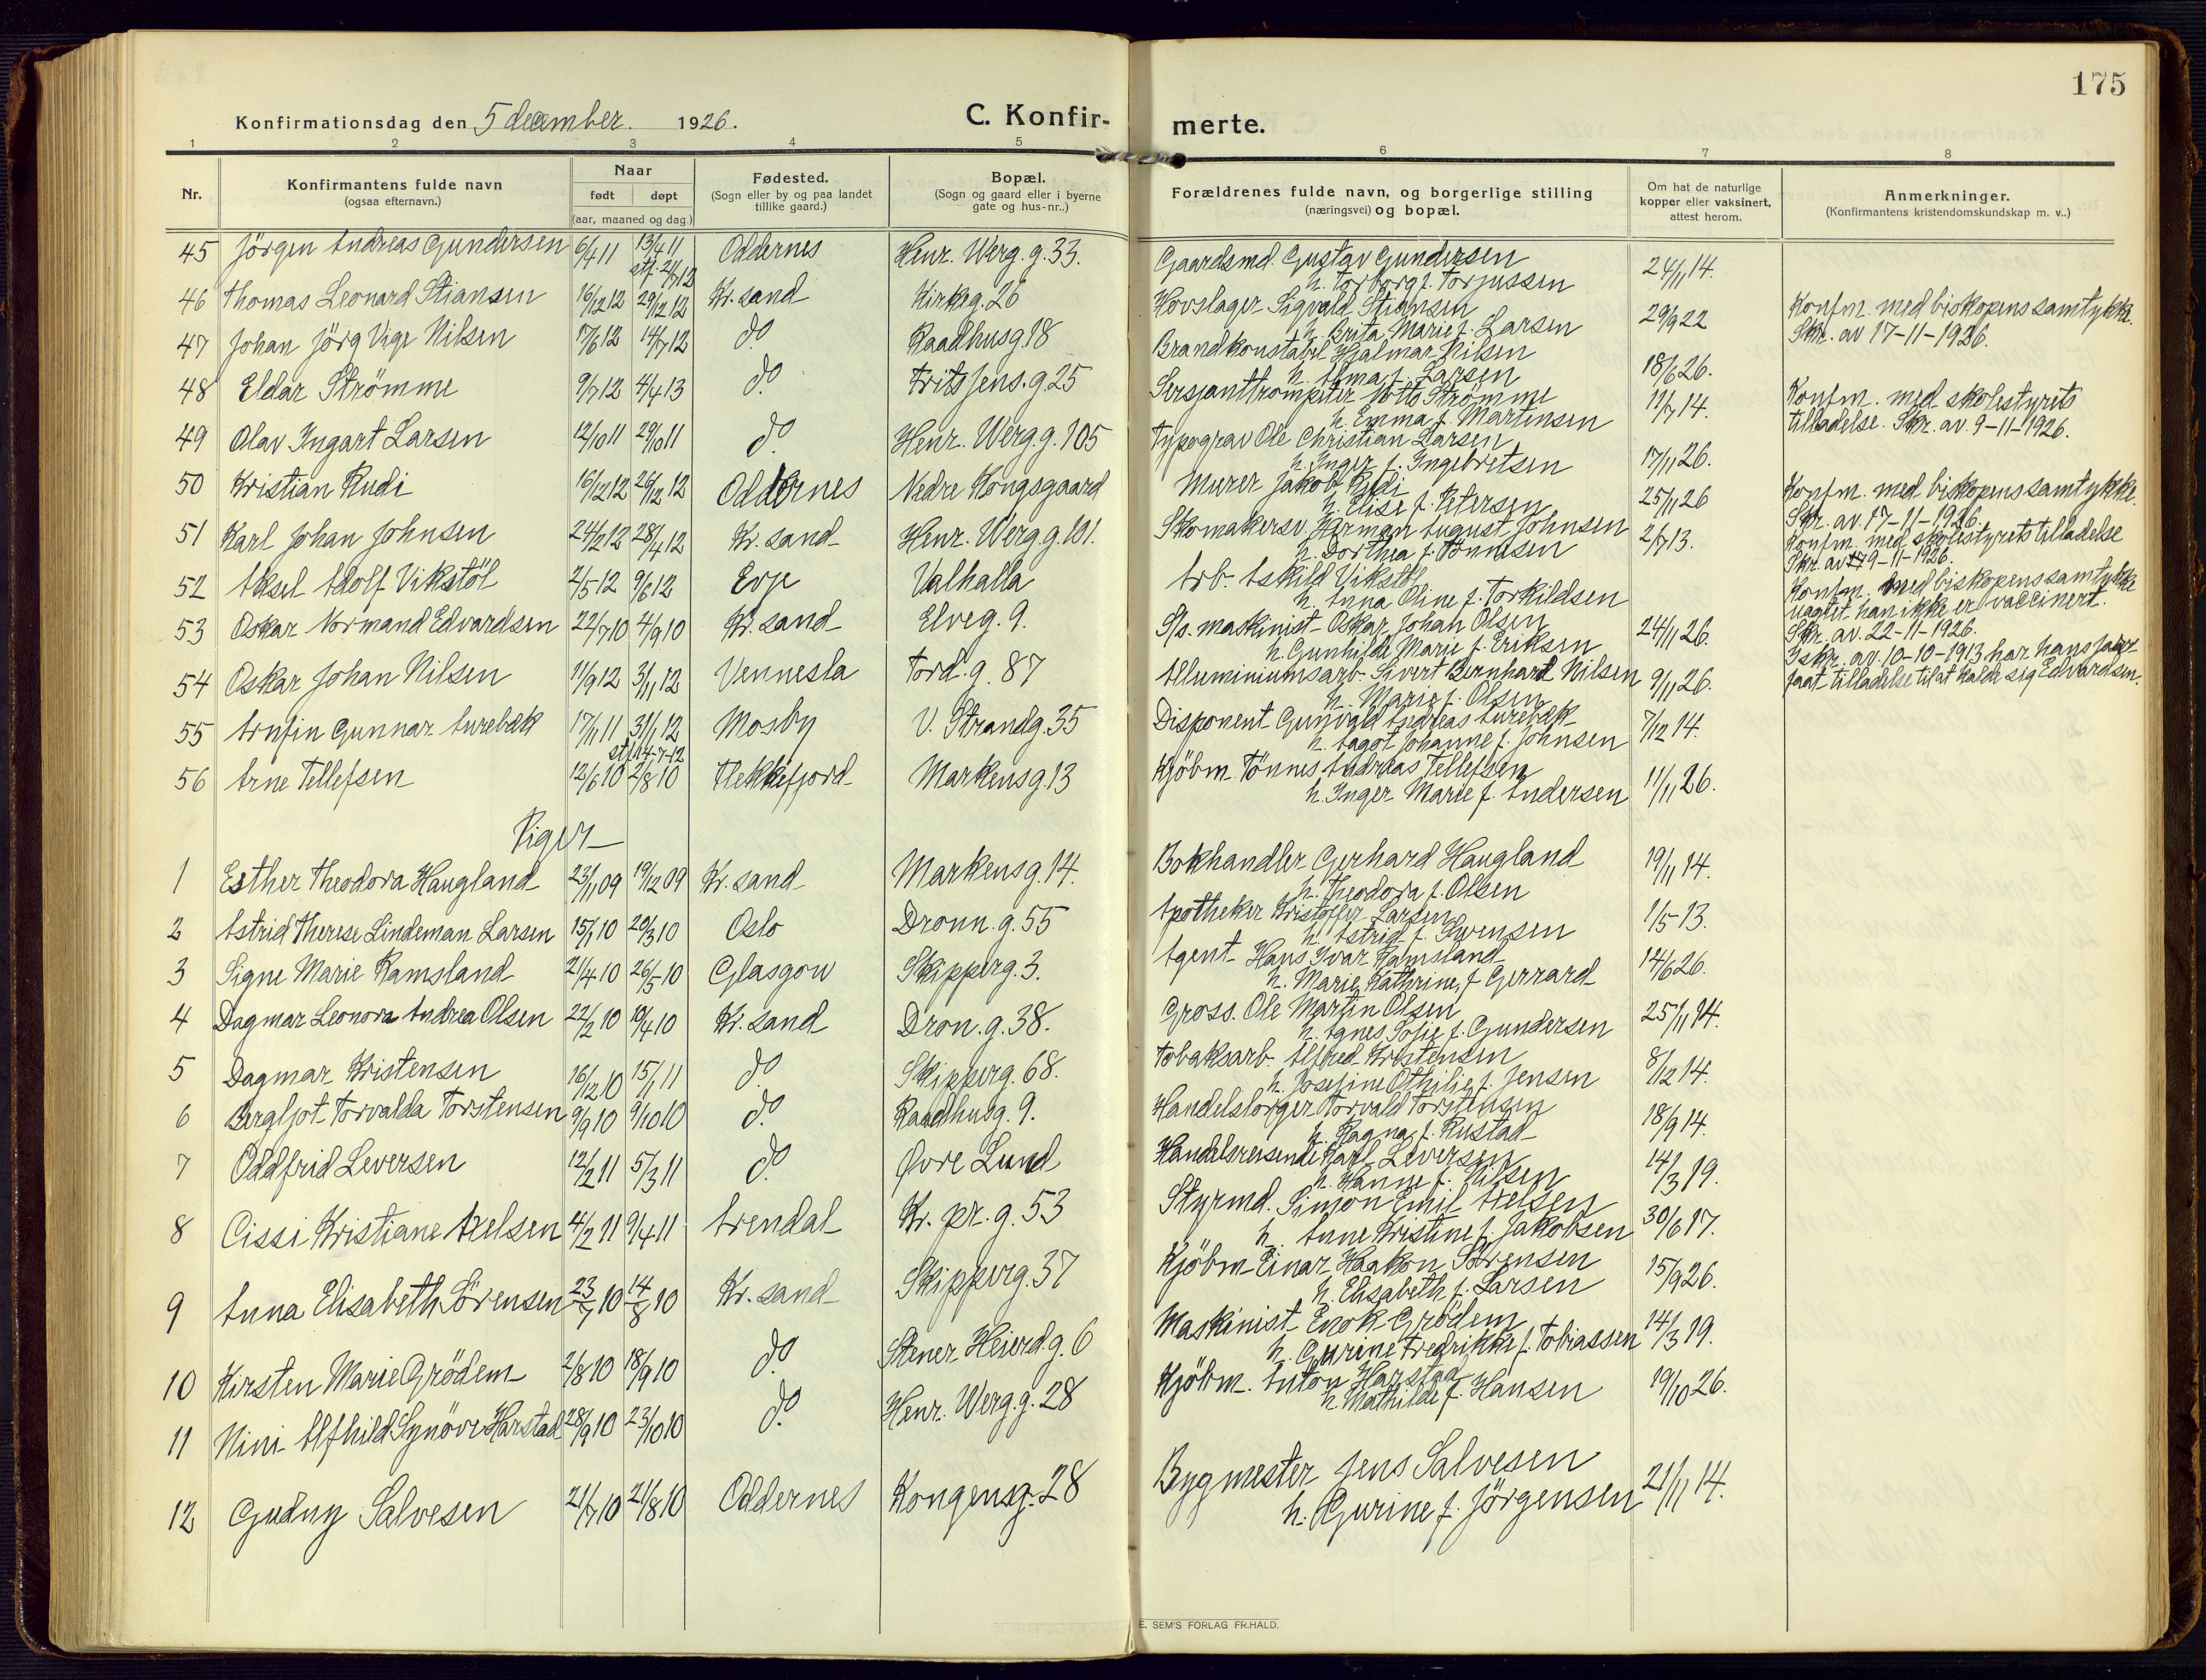 175
Konfirmationsdag den 5 december. 1926.
C. Konfir- merte.
1 2 3 4 5 6 7 8
Nr.
Konfirmantens fulde navn
(ogsaa efternavn.)
Naar
født døpt
(aar, maaned og dag.)
Fødested.
(Sogn eller by og paa landet
tillike gaard.)
Bopæl.
(Sogn og gaard eller i byerne
gate og hus-nr..)
Forældrenes fulde navn, og borgerlige stilling
(næringsvei) og bopæl.
Om hat de naturlige
kopper eller vaksinert,
attest herom.
Anmerkninger.
(Konfirmantens kristendomskundskap m. v..)
45 Jörgen Andreas Gundersen 6/4 11 13/4 11 stf. 2/7 12 Oddernes Henr. Werg. g. 33. Gaardsmd. Gustav Gundersen
h. Torborg f. Torjussen 24/11 14.
46 Thomas Leonard Stiansen 16/12 12 29/12 12 Kr. sand Kirkeg. 26 Hovslager Sigvald Stiansen
h. Brita Marie f. Larsen 29/9 22 Konfm. med biskopens samtykke.
Skr. av 17-11-1926.
47 Johan Jörg Vige Nilsen 17/6 12 14/7 12 do Raadhusg. 18 Brandkonstabel Hjalmar Nilsen
h. Alma f. Larsen 18/6 26.
48 Eldar Strömme 9/7 12 4/4 13 do Frits Jens. g. 25 Sersjanttrompeter Lotto Strömme
h. Emma f. Martinsen 17/7 14. Konfm. med skolestyrets
tilladelse. Skr. av. 9-11-1926.
49 Olav Ingart Larsen 12/10 11 29/10 11 do Henr. Werg. g. 105 Typograv Ole Christian Larsen
h. Inger f. Ingebretsen 17/11 26.
50 Kristian Rudi 16/12 12 26/12 12 Oddernes Nedre Kongsgaard Murer Jakob Rudi
h. Elise f. Petersen 25/11 26 Konfm. med biskopens samtykke.
Skr. av. 17-11-1926.
51 Karl Johan Johnsen 24/2 12 28/4 12 Kr. sand Henr. Werg. g. 101. Skomakersv. Herman August Johnsen
h. Dorthea f. Tönnesen 2/7 13. Konfm. med skolestyrets tilladelse
Skr. av 9-11-1926.
52 Aksel Adolf Vikstöl 2/5 12 9/6 12 Evje Valhalla Arb. Askild Vikstöl
h. Anna Oline f. Torkildsen Konfm. med biskopens samtykke
uagtet han ikke er vaccinert.
Skr. av. 22-11-1926.
53 Oskar Normand Edvardsen 22/7 10 4/9 10 Kr. sand Elveg. 9. S/s. maskinist Oskar Johan Olsen
h. Gunhilde Marie f. Eriksen 24/11 26. I skr. av. 10-10-1913 har hans fader
faat tilladelse til at kalde sig Edvardsen.
54 Oskar Johan Nilsen 11/9 12 3/11 12 Vennesla Tord. g. 87 Alluminiumsarb. Sivert Bernhart Nilsen
h. Marie f. Olsen 9/11 26.
55 Arnfin Gunnar Aurebæk 17/11 11 31/1 12 stf. 14-7-12 Mosby V. Strandg. 35 Disponent Gunvald Andreas Aurebæk
h. Aagot Johanne f. Johnsen 7/12 14.
56 Arne Tellefsen 12/6 10 2/8 10 Flekkefjord Markensg. 13 Kjöbm. Tönnes Andreas Tellefsen
h. Inger Marie f. Andersen 11/11 26.
Piger
1 Esther Theodora Haugland 23/11 09 19/12 09 Kr. sand Markensg. 14. Bokhandler Gerhard Haugland
h. Theodora f. Olsen 19/11 14.
2 Astrid Therese Lindeman Larsen 15/1 10 20/3 10 Oslo Dronn. g. 55 Apotheker Kristoffer Larsen
h. Astrid f. Svensen 1/5 13.
3 Signe Marie Ramsland 21/4 10 26/5 10 Glasgow Skipperg. 3. Agent Hans Ivar Ramsland
h. Marie Kathrine f. Gerrard 14/6 26.
4 Dagmar Leonora Andrea Olsen 22/2 10 19/4 10 Kr. sand Dron. g. 38. Gross. Ole Martin Olsen
h. Agnes Sofie f. Gundersen 25/11 14.
5 Dagmar Kristensen 16/12 10 15/1 11 do Skipperg. 68. Tobaksarb. Alfred Kristensen
h. Josefine Othilie f. Jensen 8/12 14.
6 Bergljot Torvalda Torstensen 9/9 10 9/10 10 do Raadhusg. 9. Handelsborger Torvald Torstensen
h. Ragna f. Rustad 18/9 14.
7 Oddfrid Leversen 12/2 11 5/3 11 do Øvre Lund Handelsreisende Karl Leversen
h. Hanne f. Nilsen 14/3 19.
8 Cissi Kristiane Axelsen 4/2 11 9/4 11 Arendal Kr. pr. g. 53 Styrmd. Simon Emil Axelsen
h. Anne Kristine f. Jakobsen 30/6 17.
9 Anna Elisabeth Sörensen 23/7 10 14/8 10 Kr. sand Skipperg. 37 Kjöbm. Einar Haakon Sörensen
h. Elisabeth f. Larsen 15/9 26.
10 Kirsten Marie Grödem 2/8 10 18/9 10 do Stener Heierd. g. 6 Maskinist Enok Grödem
h. Gurine Fredrikke f. Tobiassen 14/3 19.
11 Nini Alfhild Synöve Harstad 28/9 10 23/10 10 do Henr. Werg. g. 28 Kjöbm. Anton Harstad
h. Mathilde f. Hansen 19/10 26.
12 Gudny Salvesen 21/7 10 21/8 10 Oddernes Kongensg. 28 Bygmester Jens Salvesen
h. Gurine f. Jörgensen 21/11 14.
E. SEM'S FORLAG FR.HALD.